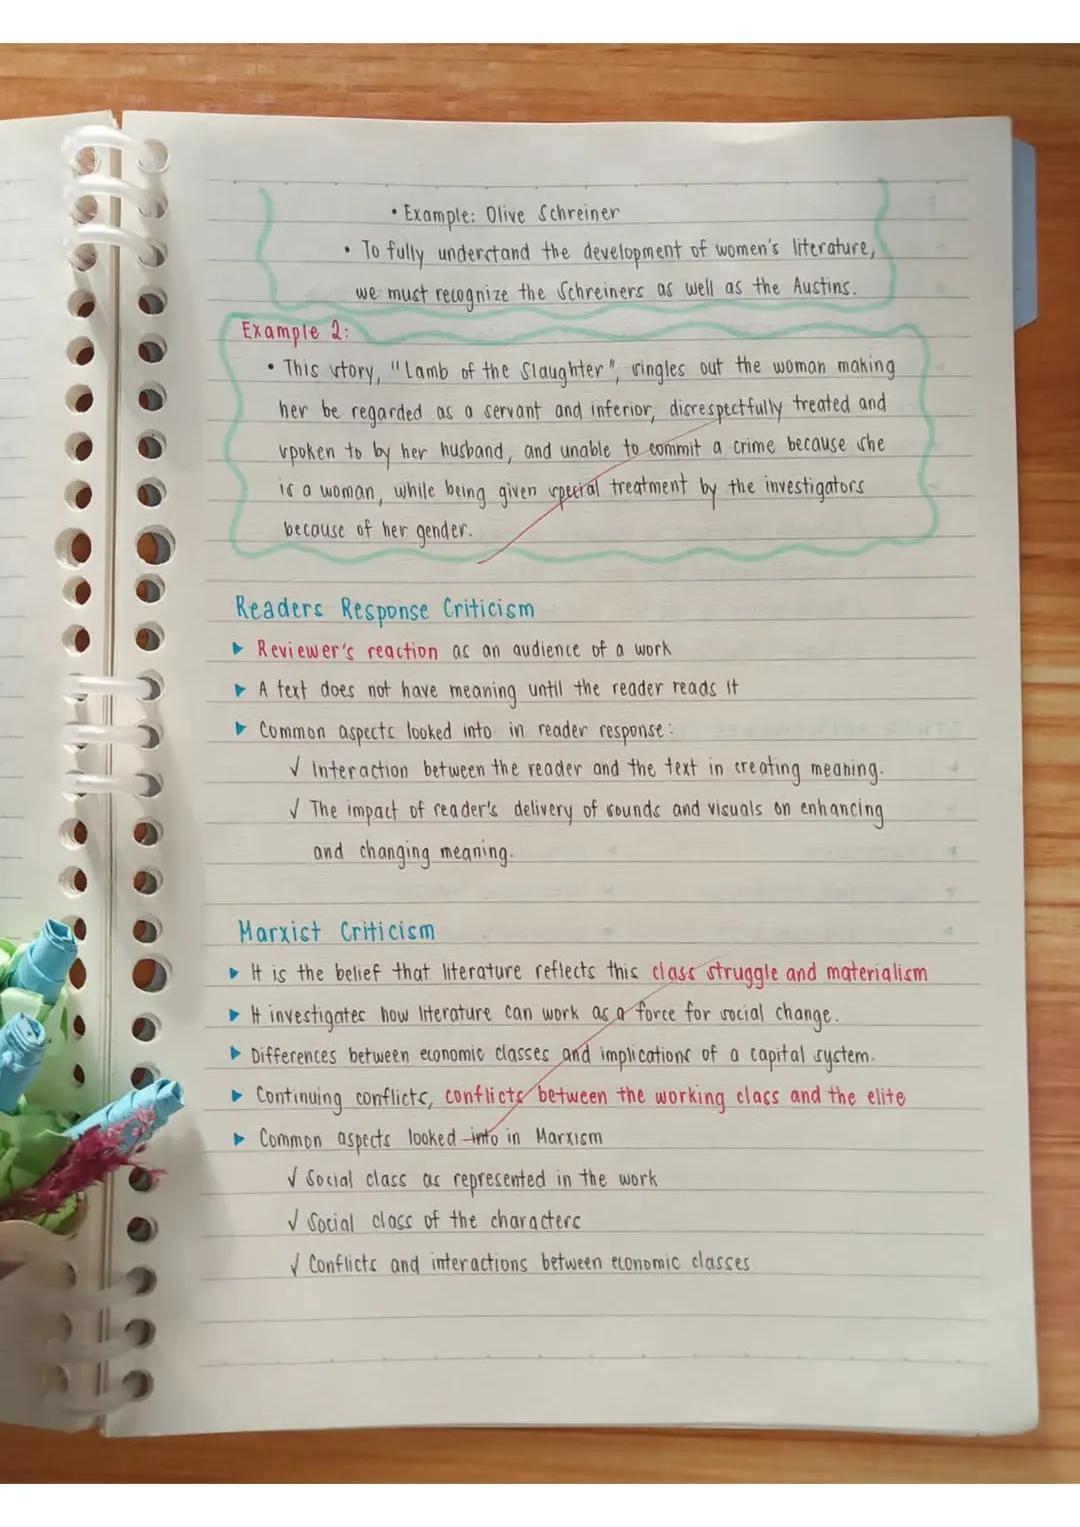 • Example: Olive Schreiner
• To fully understand the development of women's literature,
we must recognize the Schreiners as well as the Austins.
Example 2:
• This story, "Lamb of the Slaughter", singles out the woman making
her be regarded as a servant and inferior, disrespectfully treated and
spoken to by her husband, and unable to commit a crime because she
is a woman, while being given special treatment by the investigators
because of her gender.
Readers Response Criticism
▶ Reviewer's reaction as an audience of a work
▶ A text does not have meaning until the reader reads it
▶ Common aspects looked into in reader response:
✓ Interaction between the reader and the text in creating meaning.
✓ The impact of reader's delivery of sounds and visuals on enhancing
and changing meaning.
Marxist Criticism
▶ It is the belief that literature reflects this class struggle and materialism
▶ It investigates how literature can work as a force for social change.
▶ Differences between economic classes and implications of a capital system.
▶ Continuing conflicts, conflicts between the working class and the elite
▶ Common aspects looked into in Marxism
✓ Social class as represented in the work
✓ Social class of the characters
✓ Conflicts and interactions between economic classes